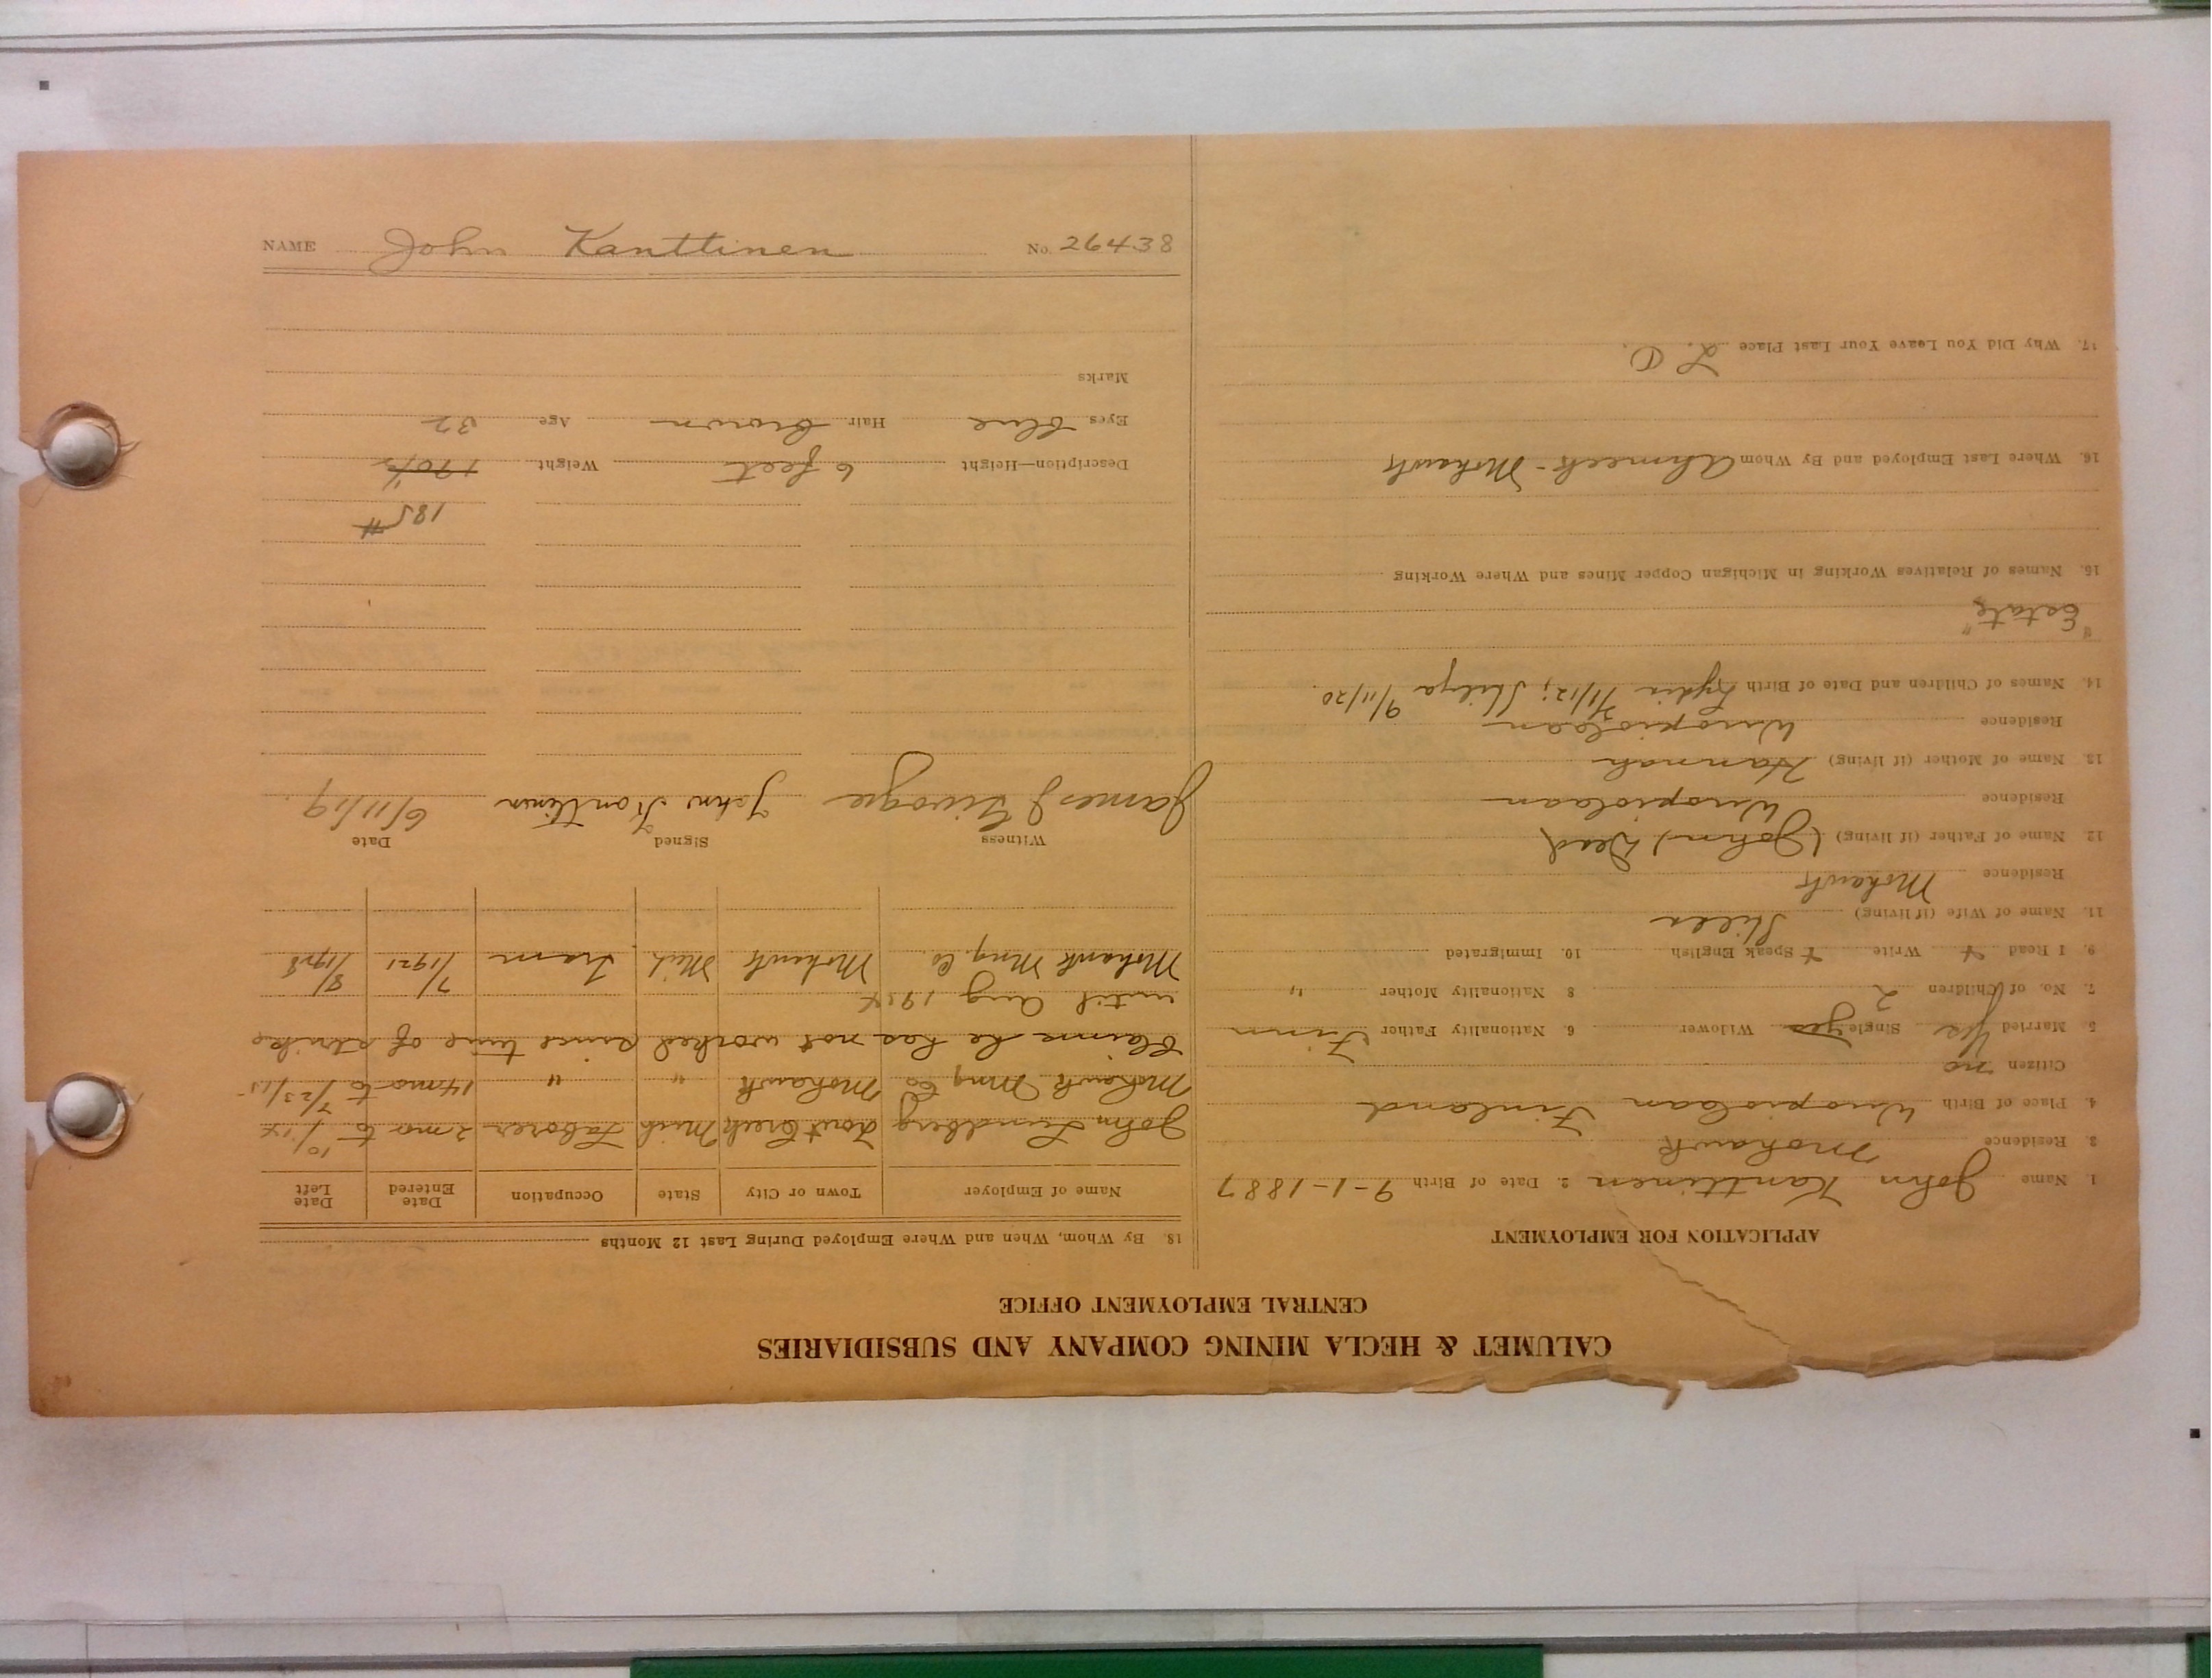 CALUMET & HECLA MINING COMPANY AND SUBSIDIARIES
CENTRAL EMPLOYMENT OFFICE
APPLICATION FOR EMPLOYMENT
1. Name John Kanttinen 2. Date of Birth 9-1-1887
3. Residence Mohawk
4. Place of Birth Finland
Citizen no
5. Married Yes Single Yes Widower 6. Nationality Father Finn
7. No. of Children 2 8 Nationality Mother "
9. I Read Write Speak English 10. Immigrated
11. Name of Wife (if living)
Residence Mohawk
12. Name of Father (if living) (John) Dead
Residence
13. Name of Mother (if living) Hannah
Residence
14. Names of Children and Date of Birth 7/1/12; 9/11/20.
"Estate"
15. Names of Relatives Working in Michigan Copper Mines and Where Working
16. Where Last Employed and By Whom Ahmeek - Mohawk
17. Why Did You Leave Your Last Place L. O.
18. By Whom, When and Where Employed During Last 12 Months
Name of Employer Town or City State Occupation Date Entered Date Left
John Lundberg Trout Creek Mich Laborer 2 mo to 10/14
Mohawk Mng Co Mohawk " " 14 mo to 7/23/13
Claims he has not worked since time of strike
until Aug 1914
Mohawk Mng. Co. Mohawk Mich Tram 7/1921 8/1928
Witness Signed Date
James J John Kanttinen 6/11/19.
185 #
Description—Height 6 feet Weight 190 1/2
Eyes blue Hair brown Age 32
Marks
NAME John Kanttinen No. 26438